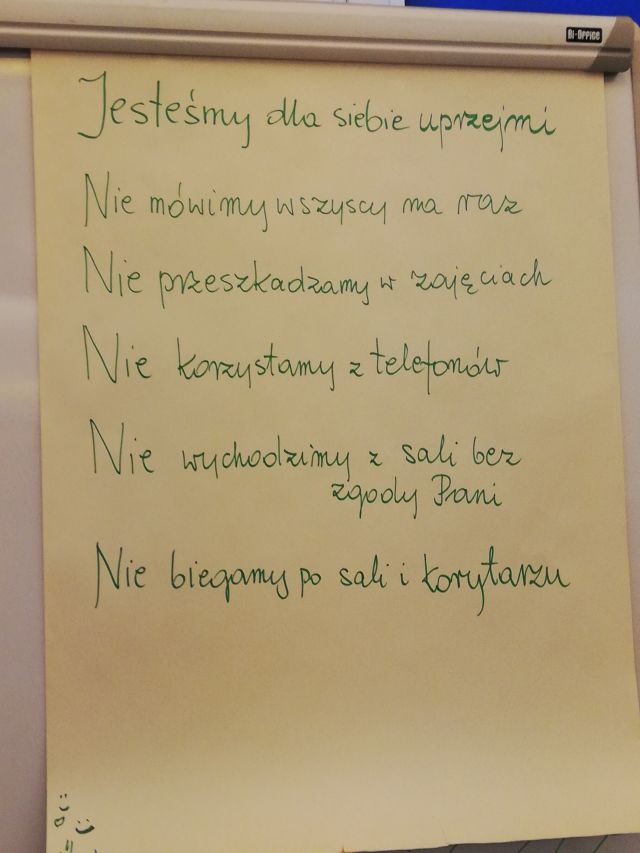 Bi-Office
Jesteśmy dla siebie uprzejmi
Nie mówimy wszyscy na raz
Nie przeszkadzamy w zajęciach
Nie korzystamy z telefonów
Nie wychodzimy z sali bez
zgody Pani
Nie biegamy po sali i korytarzu